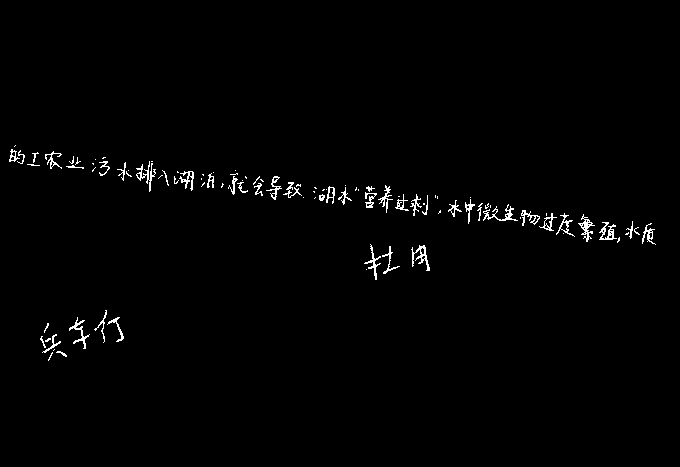 的工农业污水排入湖泊,就会导致湖水"营养过剩",水中微生物过度繁殖,水质
杜甫
兵车行